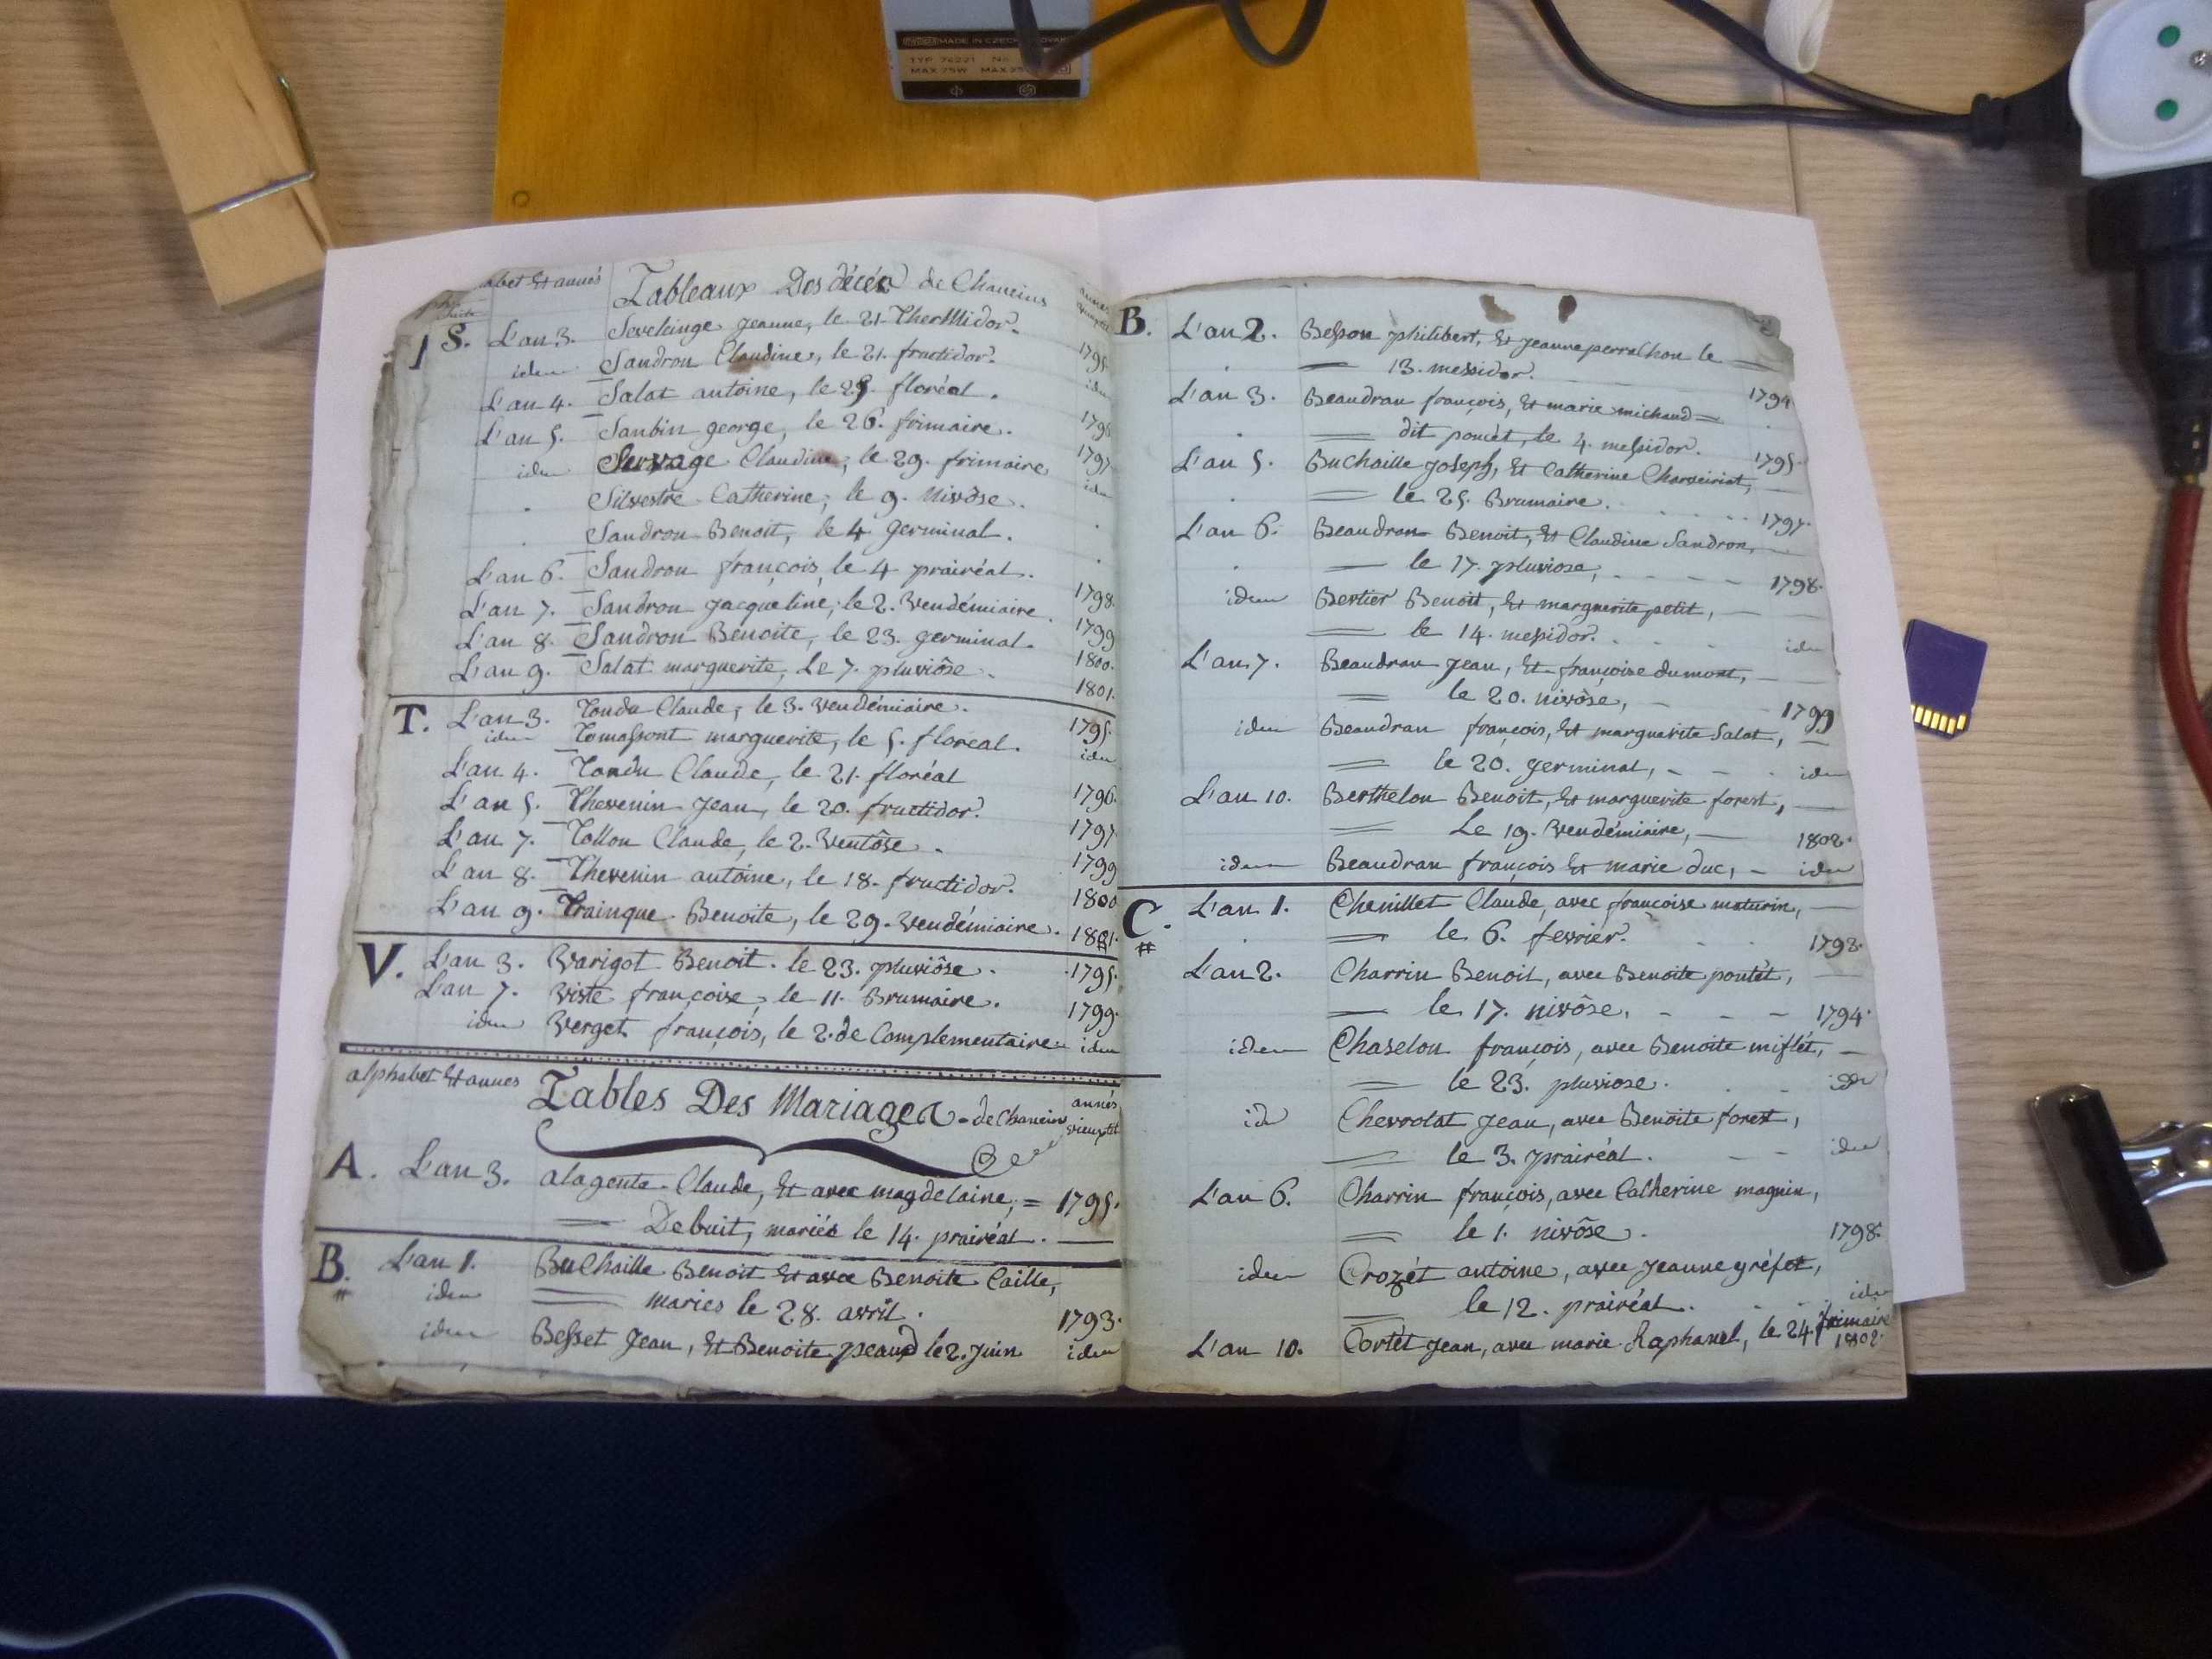 MADE IN CZECHOSLOVAK
TYP 74221 No
MAX 75W MAX 25
abet Et annés Tableaux Des décéa de Chaneins
S. L'an 3. Sevelinge jeanne, le 21. TherMidor. 1795.
idem Sandron Claudine, le 21. fructidor. idem
L'an 4. Salat antoine, le 29. floréal. 1796
L'an 5. Sanbin george, le 26. frimaire. 1797
idem Servage Claudine, le 29. frimaire idem
. Silvestre Catherine, le 9. Nivôse.
. Sandron Benoit, le 4 germinal.
L'an 6. Sandron françois, le 4 prairéal. 1798.
L'an 7. Sandron jacqueline, le 2. Vendémiaire. 1799
L'an 8. Sandron Benoite, le 23. germinal. 1800.
L'an 9. Salat marguerite, Le 7. pluviôse. 1801.
T. L'an 3. Tondu Claude, le 3. Vendémiaire. 1795.
idem Tomassont marguerite, le 5. floreal. idem
L'an 4. Tondu Claude, le 21. floréal 1796.
L'an 5. Thevenin jean, le 20. fructidor. 1797
L'an 7. Tollon Claude, le 2. Ventôse. 1799
L'an 8. Thevenin antoine, le 18. fructidor. 1800
L'an 9. Trainque Benoite, le 29. Vendémiaire. 1801.
V. L'an 3. Varigot Benoit. le 23. pluviôse. 1795.
L'an 7. Viste françoise, le 11. Brumaire. 1799.
idem Verget françois, le 2. de Complementaire idem
alphabet Et annes Tables Des Mariagea de Chaneins annés vieux stil
A. L'an 3. alagente Claude, Et avec magdelaine, = 1795.
Debuit, mariés le 14. prairéal.
B. L'an 1. BuChaille Benoit Et avec Benoite Caille,
idem maries le 28. avril. 1793.
idem Besset Jean, Et Benoite peaud le 2. juin idem
B. L'an 2. Besson philibert, Et jeanne perrachon le
. 13. messidor. 1794
L'an 3. Beaudran françois, Et marie michaud =
. dit poncet, le 4. messidor. 1795.
L'an 5. BuChaille joseph, Et Catherine Charveiriat,
. le 25. Brumaire. 1797.
L'an 6. Beaudran Benoit, Et Claudine Sandron,
. le 17. pluviose, 1798.
idem Bertier Benoit, Et marguerite petit,
le 14. messidor. idem
L'an 7. Beaudran jean, Et françoise dumont,
le 20. nivôse, 1799
idem Beaudran françois, Et marguerite Salat,
le 20. germinal, idem
L'an 10. Berthelon Benoit, Et marguerite forest,
Le 19. Vendémiaire, 1802.
idem Beaudran françois Et marie duc, idem
C. L'an 1. Chenillet Claude, avec françoise maturin,
. le 6. fevrier. 1793.
L'an 2. Charrin Benoit, avec Benoite pontét,
le 17. nivôse. 1794.
idem Chaselon françois, avec Benoite miflét,
le 23. pluviose. idem
id Chevrolat Jean, avec Benoite forest,
le 3. prairéal. idem
L'an 6. Charrin françois, avec Catherine magnin,
le 1. nivôse. 1798.
idem Crozét antoine, avec jeanne gréfet,
le 12. prairéal. idem
L'an 10. Cortét jean, avec marie Raphanel, le 24. frimaire
1802.